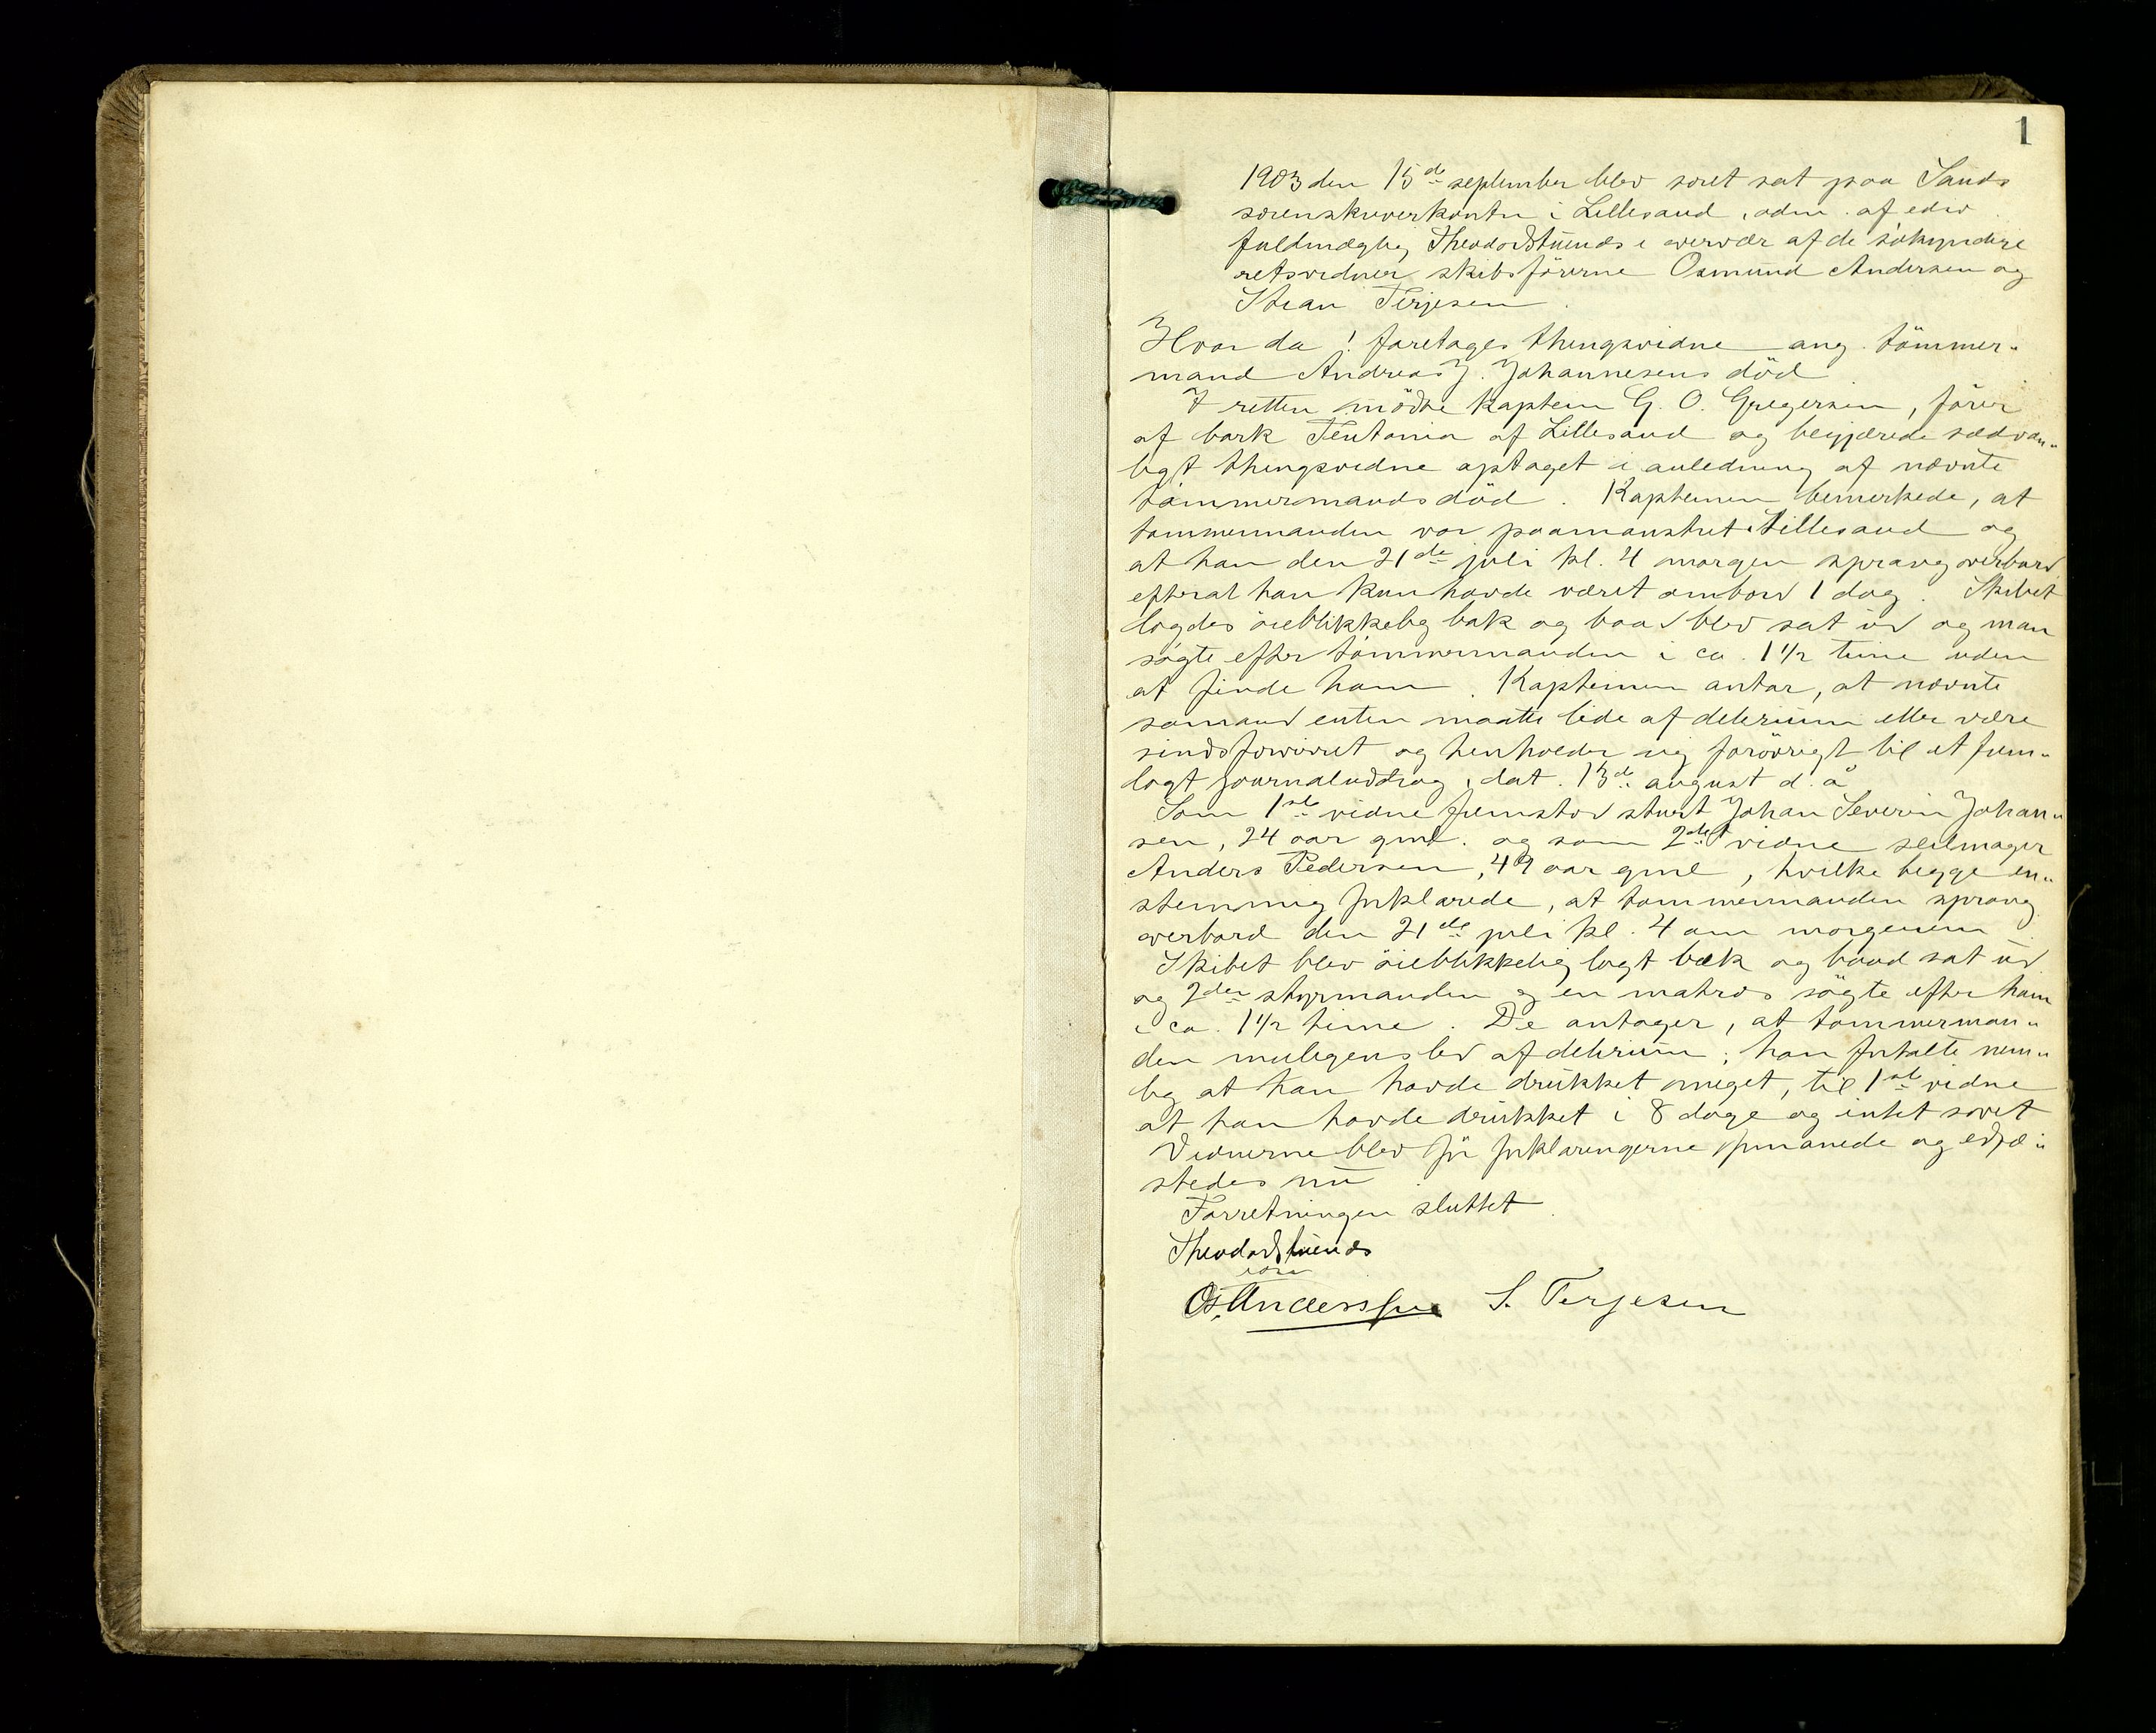 1
1903 den 15de september blev söret sat paa Sands
sorenskriverkontor i Lillesand, adm. af edsv.
fuldmægtig Theodor Stuenæs i overvær af de sökyndige
retsvidner skibsförerne Osmund Andersen og
Stian Terjesen.
Hvor da! foretages thingsvidne ang. tömmer„
mand Andreas J. Johannesens död.
I retten mödte kaptein G. O. Gregersen, förer
af bark Teutonia af Lillesand og begjærede sædvan„
ligt thingsvidne optaget i anledning af nævnte
tömmermands död. Kapteinen bemerkede, at
tömmermanden var paamönstret i Lillesand og
at han den 21de juli kl. 4 morgen sprang overbord
efterat han kun havde været ombord 1 dag. Skibet
lagdes öieblikkelig bak og baad blev sat ud og man
sögte efter tömmermanden i ca. 1 1/2 time uden
at finde ham. Kapteinen antar, at nævnte
sömand enten maatte lide af delirium eller være
sindsforvirret og henholder sig forövrigt til et frem„
lagt journaludtrag, dat. 13de august d. å.
Som 1ste vidne fremstod stuert Johan Severin Johan„
sen, 24 aar gml. og som 2det vidne seilmager
Anders Pedersen, 49 aar gml, hvilke begge en„
stemmig forklarede, at tömmermanden sprang
overbord den 21de juli kl. 4 om morgenen.
Skibet blev öieblikkelig lagt bak og baad sat ud
og 2den styrmanden og en matros sögte efter ham
i ca. 1 1/2 time. De antager, at tömmerman„
den muligens led af delirium; han fortalte nem„
lig at han havde drukket meget, til 1ste vidne
at han havde drukket i 8 dage og intet sovet
Vidnerne blev för forklaringerne formanede og edfæ„
stedes nu.
Forretningen sluttet.
Theodor Stuenæs
edsv
Os. Anderssen S. Terjesen